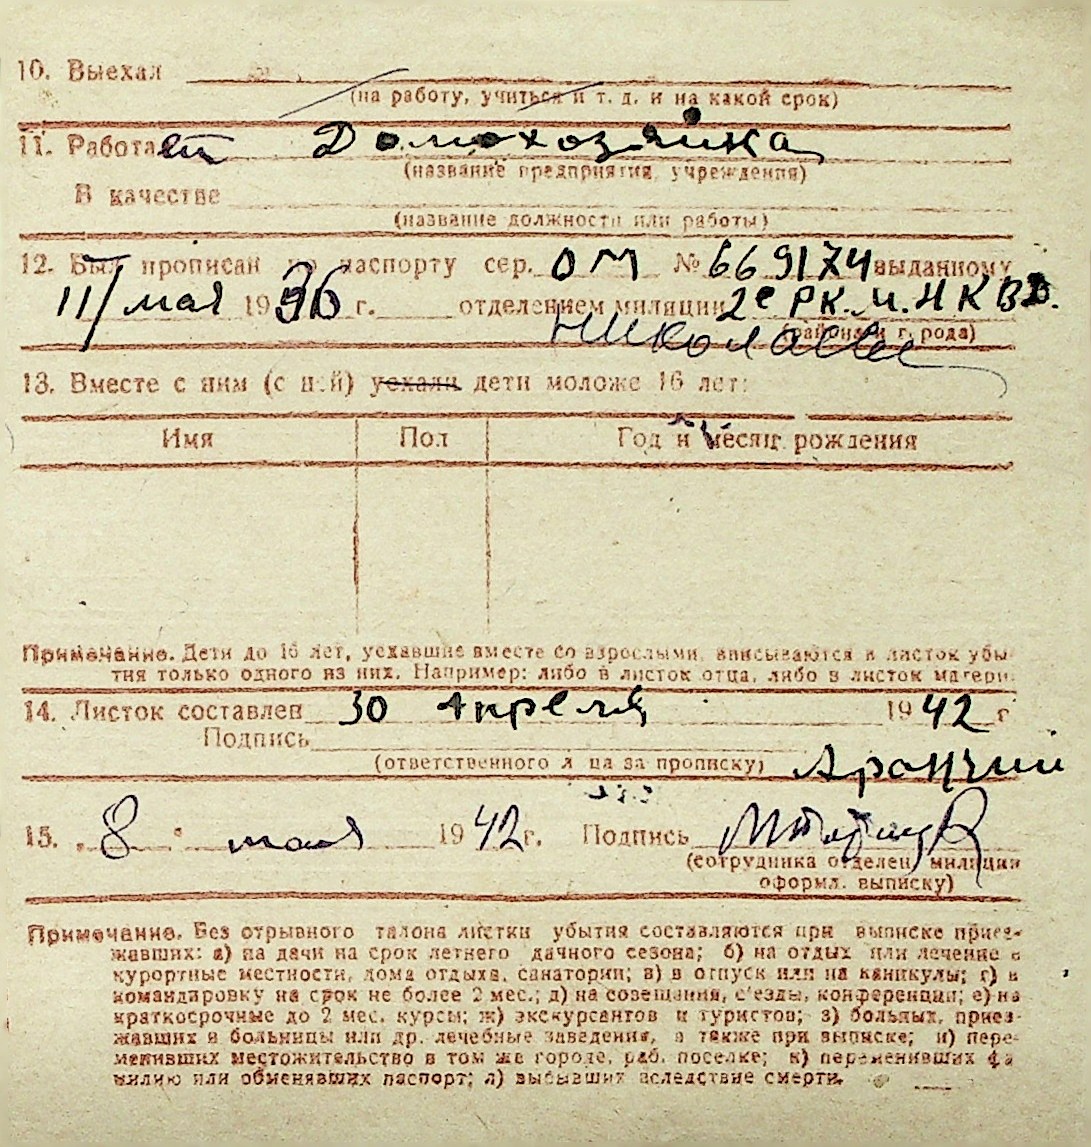 10. Выехал
(на работу, учиться и т. д. и на какой срок)
11. Работает Домохозяйка
(название предприятия, учреждения)
В качестве
(название должности или работы)
12. Был прописан по паспорту сер. ОМ № 669174 выданному
11/ мая 1936 г. отделением милиции 2е РК. М. НКВД.
(района и города)
Николаеве
13. Вместе с ним (с ней) уехали дети моложе 16 лет:
Имя Пол Год и месяц рождения
Примечание. Дети до 16 лет, уехавшие вместе со взрослыми, вписываются в листок убы-
тия только одного из них. Например: либо в листок отца, либо в листок матери.
14. Листок составлен 30 Апреля 1942 г
Подпись
(ответственного лица за прописку)
15. „8" мая 1942 г. Подпись
(сотрудника отделен. милиции
оформл. выписку)
Примечание. Без отрывного талона листки убытия составляются при выписке приез-
жавших: а) на дачи на срок летнего дачного сезона; б) на отдых или лечение в
курортные местности, дома отдыха, санатории; в) в отпуск или на каникулы; г) в
командировку на срок не более 2 мес.; д) на совещания, с'езды, конференции; е) на
краткосрочные до 2 мес. курсы; ж) экскурсантов и туристов; з) больных, приез-
жавших в больницы или др. лечебные заведения, а также при выписке; и) пере-
менивших местожительство в том же городе, раб. поселке; к) переменивших фа
милию или обменявших паспорт; л) выбывших вследствие смерти.